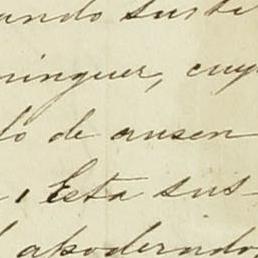 ando susti
minguez, cuy
do de ausen
, Esta sus-
apoderado,